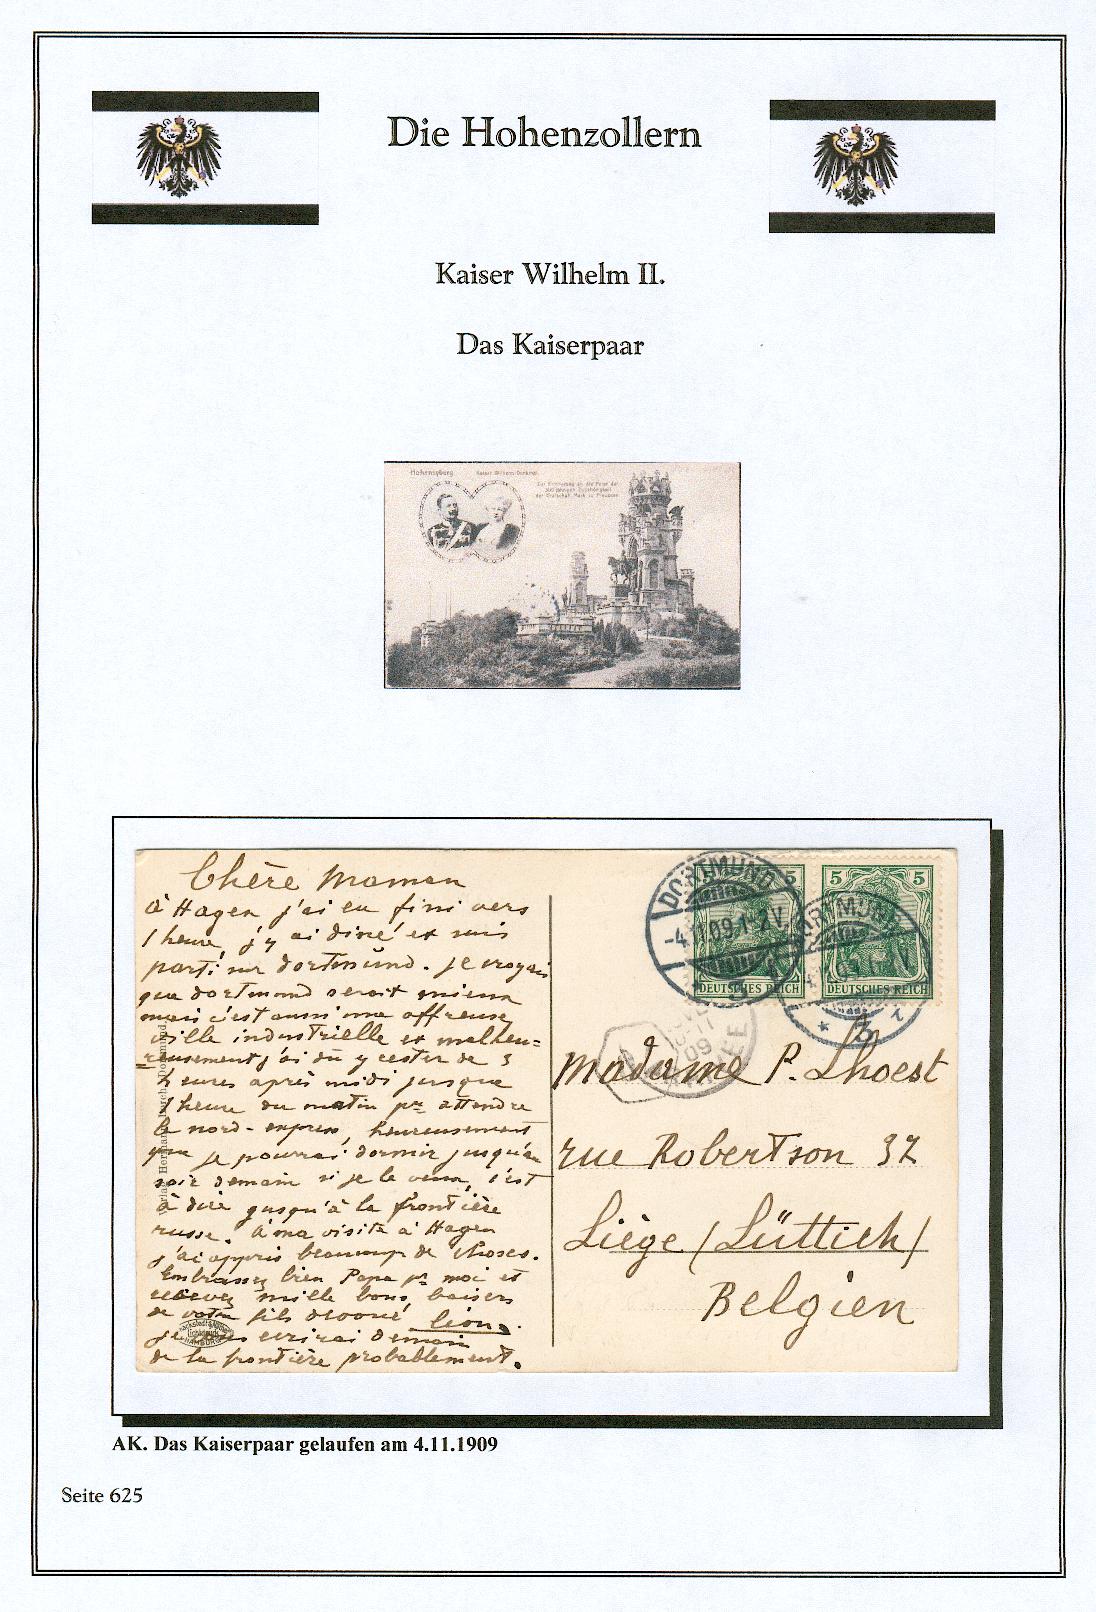 Die Hohenzollern
Kaiser Wilhelm II.
Das Kaiserpaar
Hohensyburg Kaiser Wilhelm-Denkmal
Zur Erinnerung an die Feier der
300 jährigen Zugehörigkeit
der Grafschaft Mark zu Preussen
Chère Maman
à Hagen j'ai eu fini vers
1 heure, j'y ai diné et suis
parti sur dortmünd. je croyais
que dortmond serait mieux
mais c'est aussi une affreuse
ville industrielle et malheu=
=reusement j'ai dû y rester de 3
heures après midi jusque
1 heure du matin pr attendre
le nord-express, heureusement
que je pourrai dormir jusqu'au
soir demain si je le veux, c'est
à dire jusqu'à la frontière
russe. à ma visite à Hagen
j'ai appris beaucoup de choses.
Embrassez bien Papa pr moi et
recevez mille bons baisers
de votre fils dévoué Léon.
je vous écrirai demain
de la frontière probablement.
DORTMUND
-4 09.1-2V.
DORTMUND
09.1-2V
* 3 r
5
5
DEUTSCHES REICH
DEUTSCHES REICH
09
Madame P. Lhoest
rue Robertson 37
Liège (Lüttich)
Belgien
Herman Dortmund
HAMBURG
AK. Das Kaiserpaar gelaufen am 4.11.1909
Seite 625